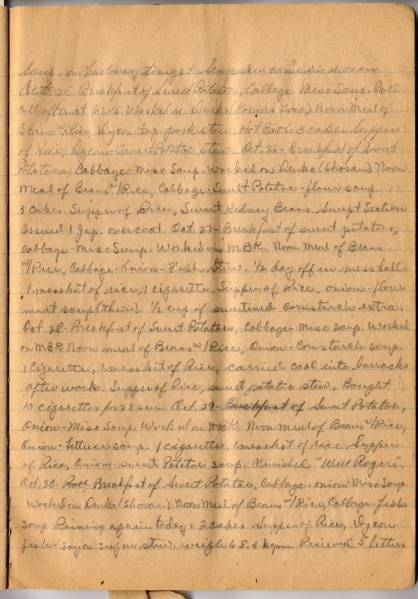 Song on
Breakfast of Sweet Potatoes, Cabbage Miso Soup. Roll
Call after at Worked on Denko Noon Meal of
Beans w/Rice, Dycon top, pork stew. Hot Bath 3 cakes. Supper
of Rice, Dycon-Sweet Potato stew. Oct. 26- Breakfast of Sweet
Potatoes, Cabbage-Miso Soup. Worked on Denko (Shosan) Noon
Meal of Beans w/Rice, Cabbage-Sweet Potatoes-flour soup
3 cakes. Supper of Rice, Sweet Kidney Beans. Swept Section
Issued 1 Jap. overcoat. Oct. 27- Breakfast of sweet potatoes,
Cabbage-Miso Soup. Worked on MBK. Noon Meal of Beans
w/Rice, Cabbage-Onion-Fish Stew. 1/2 day off in mess hall
1 messkit of rice, 1 cigarette, Supper of Rice, onion-flour
meat soup (thin). 1/2 cup of sweetened cornstarch extra.
Oct. 28- Breakfast of Sweet Potatoes, Cabbage-Miso Soup. Worked
on MBK Noon meal of Beans w/Rice, Onion-Cornstarch soup.
1 Cigarette, 1 messkit of Rice, carried coal into barracks
after work. Supper of Rice, sweet potato stew. Bought
10 cigarettes for 23 sen. Oct. 29- Breakfast of Sweet Potatoes,
Onion-Miso Soup. Worked on MBK. Noon meal of Beans w/Rice,
Onion-Lettuce soup. 1 cigarette, 1 messkit of rice Supper
of Rice, Onion-sweet Potatoe soup. Finished "Will Rogers".
Oct. 30- Breakfast of Sweet Potatoes, Cabbage-onion Miso Soup.
Worked on Denko (Shosan) Noon Meal of Beans w/Rice, Cabbage-fish
soup Raining again today. 2 cakes Supper of Rice, Dycon
fish-soya sugar stew. weigh 68. Received 5 letters